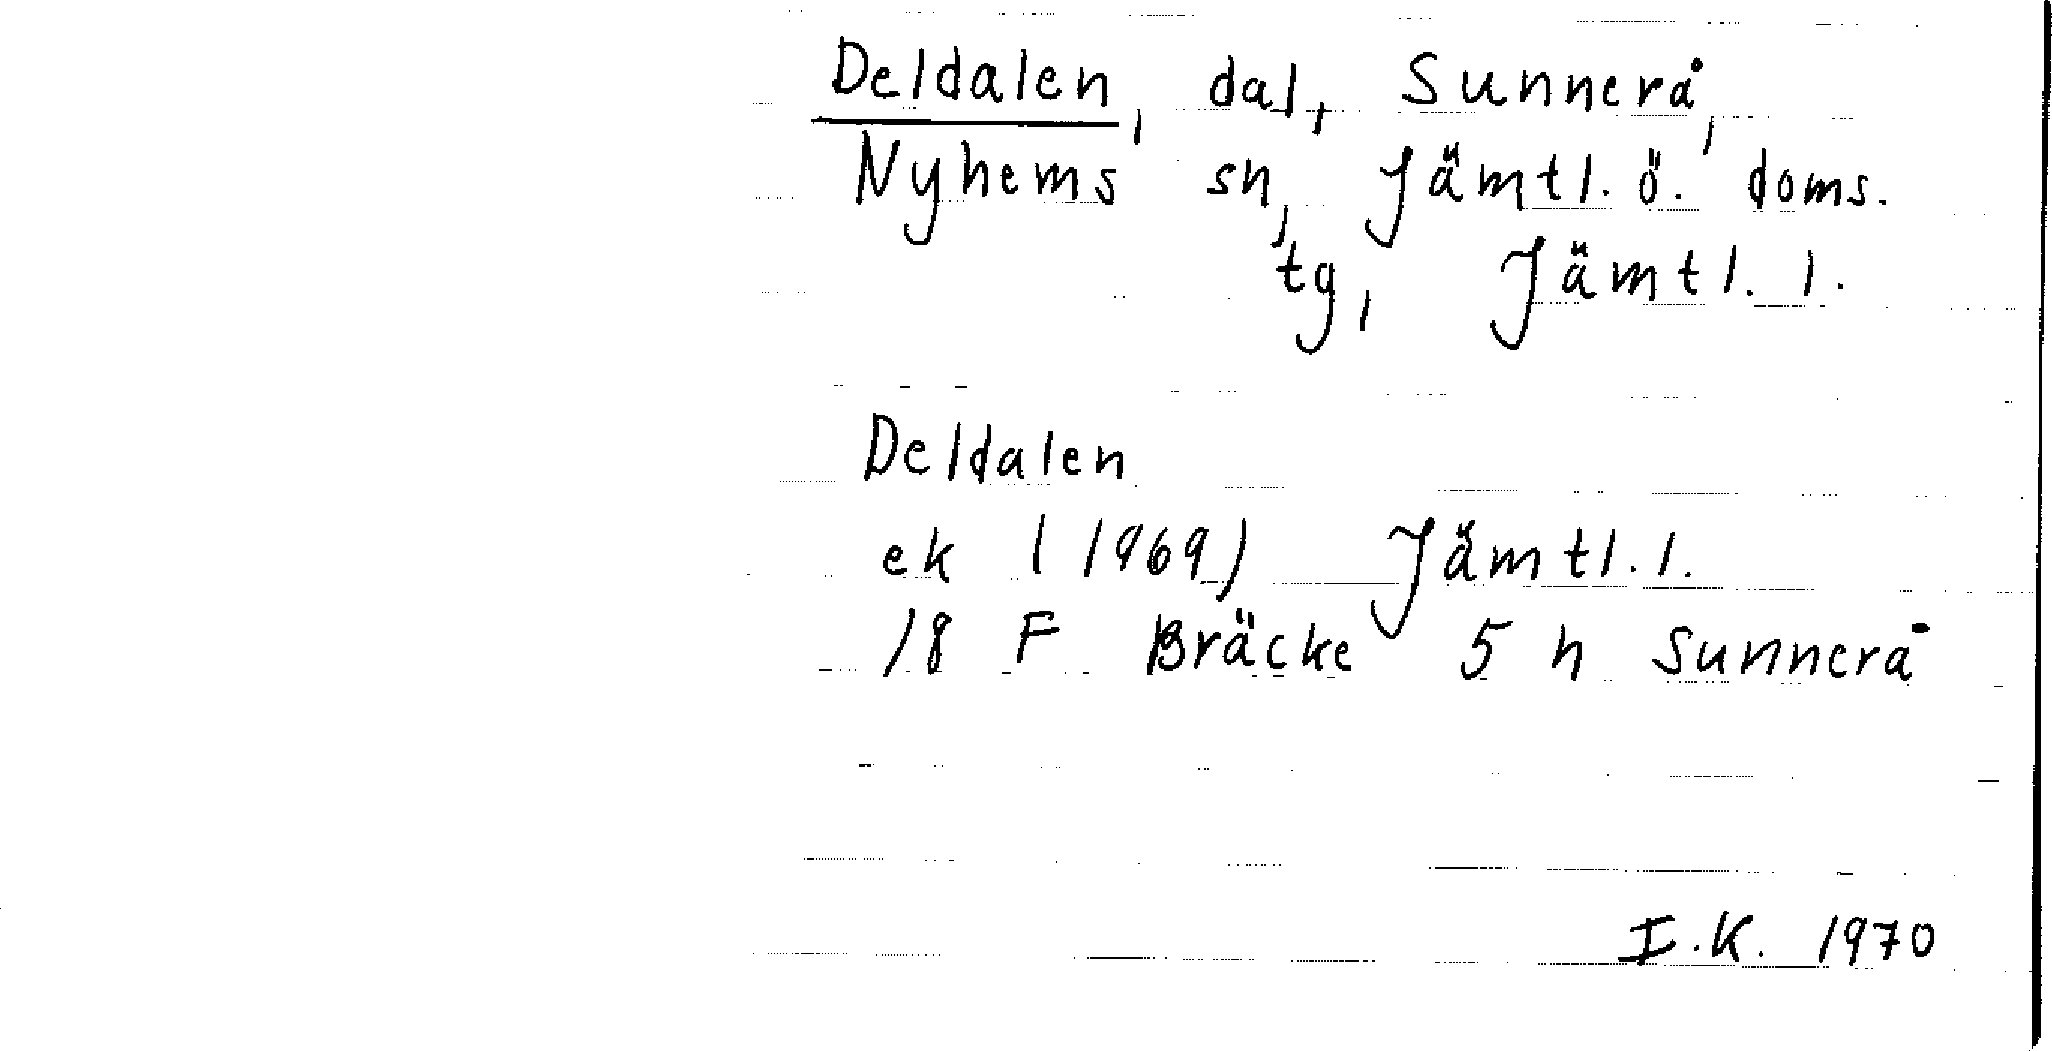 Deldalen, dal, Sunnerå,
Nyhems sn, Jämtl. ö. doms.
tg, Jämtl. l.
Deldalen
ek (1969) Jämtl. l.
18 F Bräcke 5 h Sunnerå
I.K. 1970